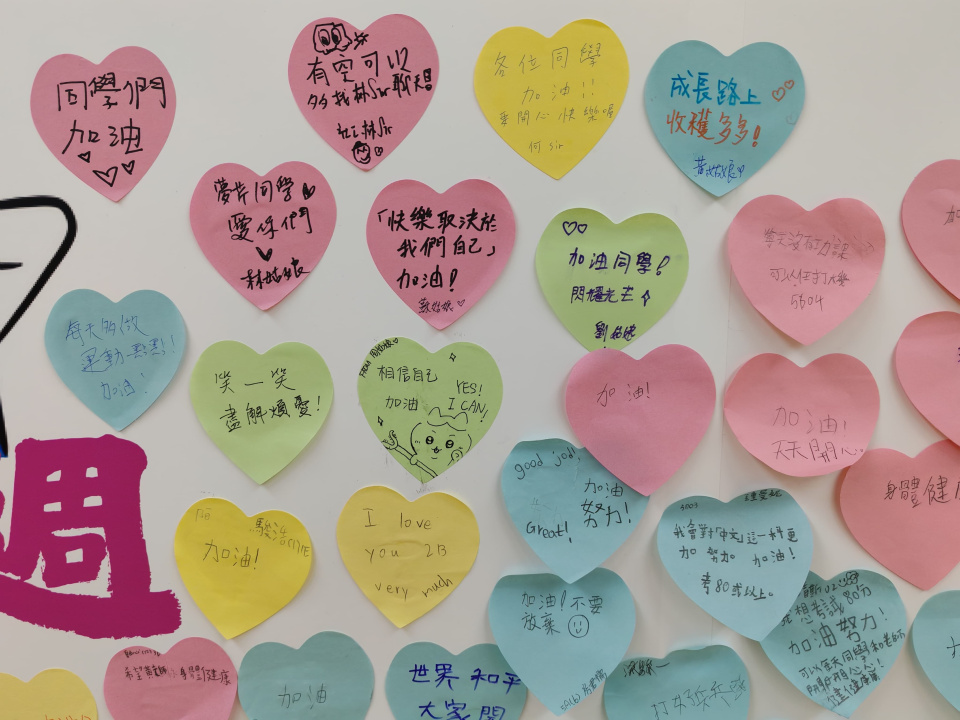 同學們
加油
有空可以
多找林Sir聊天
林Sir
各位同學
加油!!
要開心快樂喔
何sir
成長路上
收穫多多!
黃姑娘
同學
愛你們
林姑娘
「快樂取決於
我們自己」
加油!
蘇姑娘
加油同學!
閃耀光芒
劉姑娘
可以任打大機
5B04
每天多做
運動一點點!!
加油!
笑一笑
盡解煩憂!
相信自己
加油
YES!
I CAN!
加油!
加油!
天天開心
身體健
good job!
加油
努力!
Great!
加油!
I love
you 2B
very much
我會對「中文」這一科更
加努力 加油!
考80或以上。
加油!不要
放棄
加油努力!
可以每天同學和老師
開開心心!
身體健康
加油
世界和平
大家開